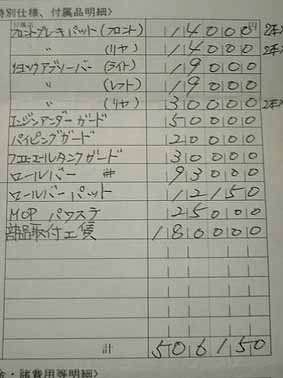 特別仕様、付属品明細〉
フロントブレーキパット(フロント) 14000 2本
〃 (リヤ) 14000 2本
ショックアブソーバー (ライト) 19000
〃 (レフト) 19000
〃 (リヤ) 30000 2本
エンジンアンダーガード 50000
パイピングガード 20000
フューエルタンクガード 30000
ロールバー 93000
ロールバーパット 12150
MOP パワステ 25000
部品取付工賃 180000
計 506150
金・諸費用等明細〉